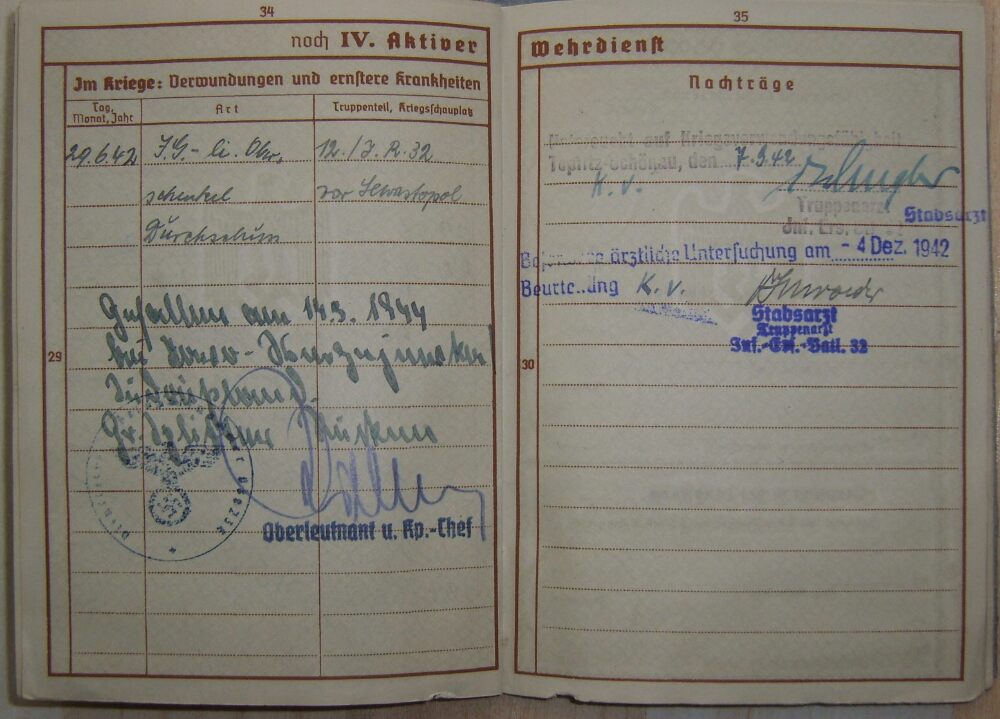 34
noch IV. Aktiver
Im Kriege: Verwundungen und ernstere Krankheiten
Tag, Monat, Jahr
Art
Truppenteil, Kriegsschauplatz
29.6.42 I.G.- li. Ober- 12./J.R.32
schenkel vor Sewastopol
Durchschuss
Gefallen am 14.3.1944
bei
Südrußland.
29
Oberleutnant u. Kp.-Chef
35
Wehrdienst
Nachträge
Untersucht auf Kriegsverwendungsfähigkeit
Teplitz-Schönau, den 7.9.42
K.v.
Truppenarzt Stabsarzt
Inf. Ers.
ärztliche Untersuchung am - 4 Dez. 1942
K.v.
Stabsarzt
Truppenarzt
Batl. 32
30